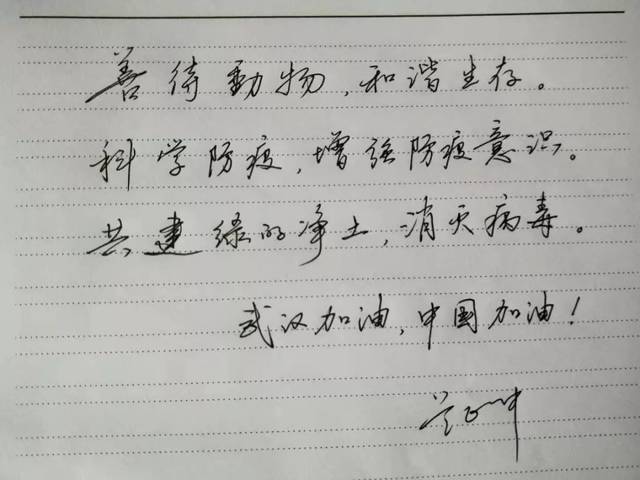 善待動物，和谐生存。
科学防疫，增强防疫意识。
共建绿的净土，消灭病毒。
武汉加油，中国加油！